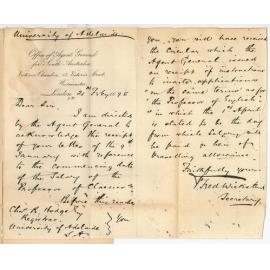 University of Adelaide
Office of Agent General
for South Australia
Victoria Chambers, 15 Victoria Street,
Westminster
London, 21st Feby 1895
Dear Sir,
I am directed
by the Agent General to
acknowledge the receipt
of your letter of the 9th
January with reference
to the commencing date
of the Salary of the
Professor of Classics
Before this reaches
Chas R. Hodge
Registrar
University of Adelaide
S.A.
You
you, you will have received
the Circular which the
Agent General issued
on receipt of instructions
to invite applications
on the same terms as for
the Professor of English
in which the 1st April
is stated to be the day
from which Salary will
be paid in lieu of
travelling allowance.
Faithfully yours
Fred Wicksteed
Secretary